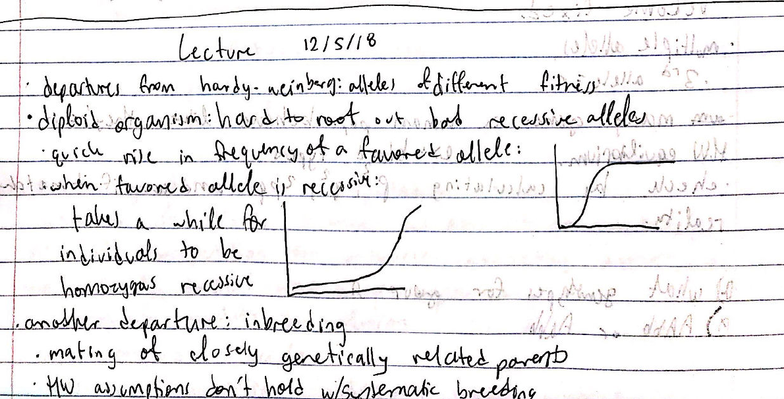 Lecture 12/5/18
· departures from hardy-weinberg: alleles of different fitness
· diploid organism: hard to root out bad recessive alleles
· quick rise in frequency of a favored allele:
· when favored allele is recessive:
takes a while for
individuals to be
homozygas recessive
· another departure: inbreeding
· mating of closely genetically related parents
· HW assumptions don't hold w/systematic breeding